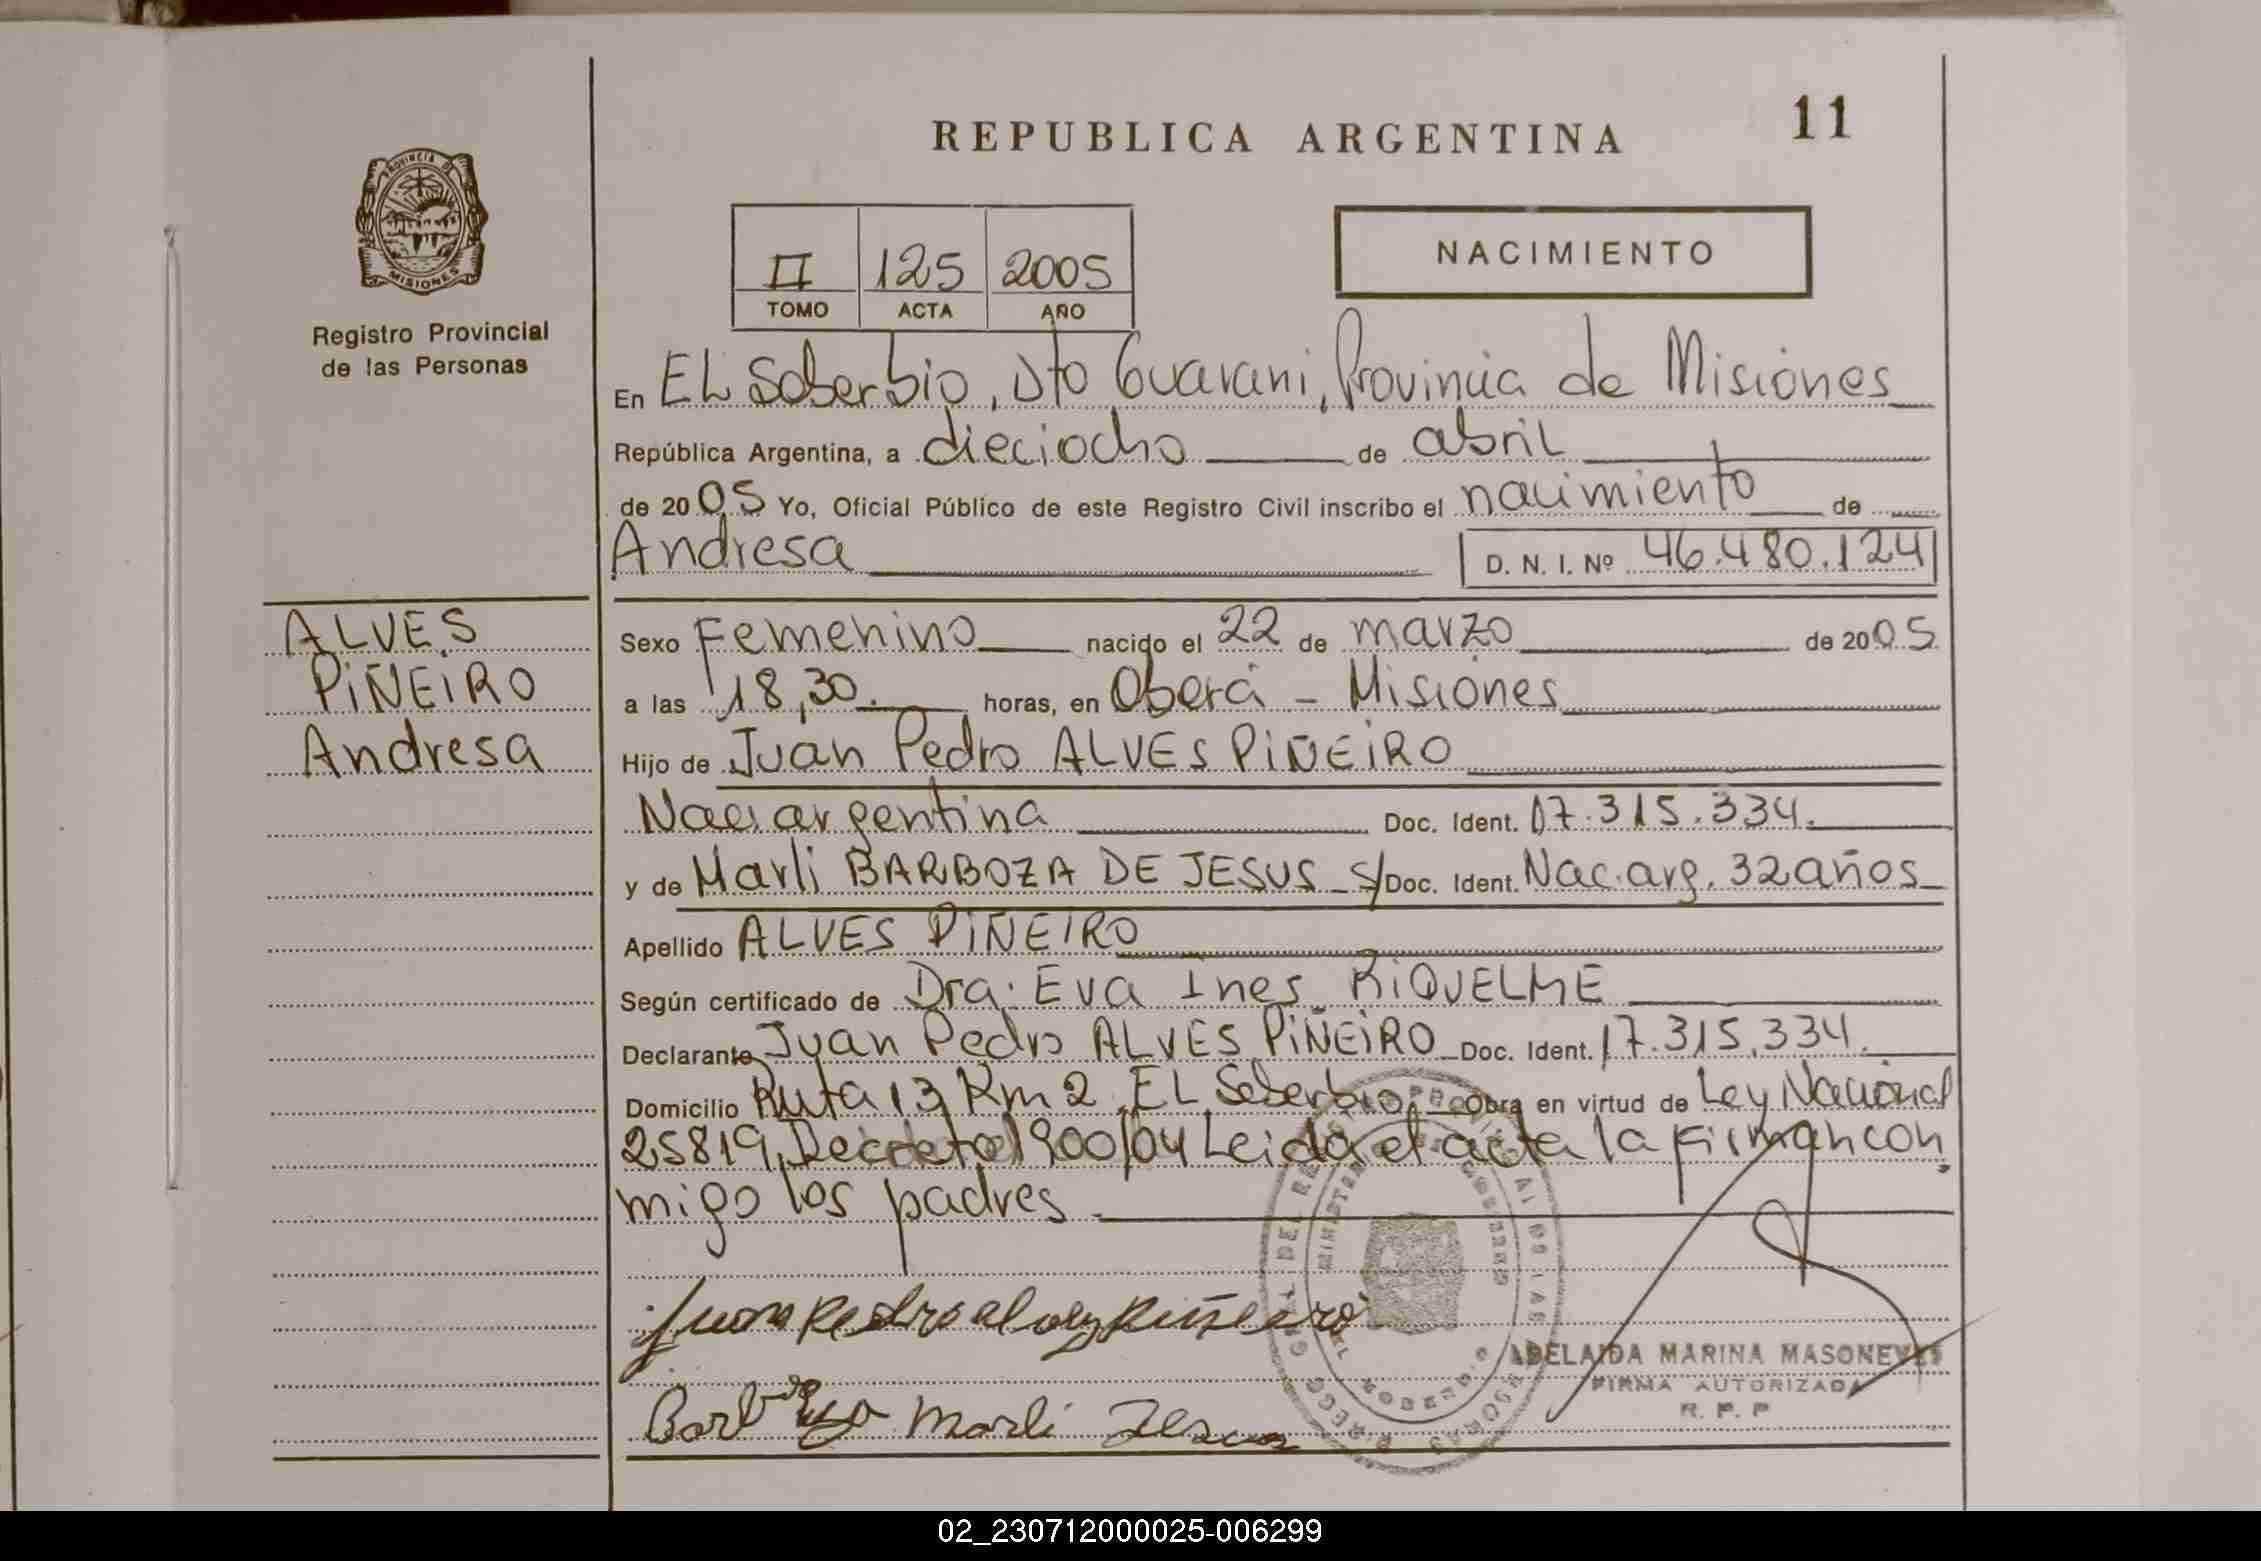 REPUBLICA ARGENTINA
11
PROVINCIA DE
MISIONES
Registro Provincial
de las Personas
II 125 2005
TOMO ACTA AÑO
NACIMIENTO
En EL Soberbio, Dto Guarani, Provincia de Misiones
República Argentina, a dieciocho de abril
de 2005 Yo, Oficial Público de este Registro Civil inscribo el nacimiento de
Andresa D. N. I. Nº 46.480.124
ALVES
PIÑEIRO
Andresa
Sexo Femenino nacido el 22 de marzo de 2005
a las 18,30. horas, en Oberá - Misiones
Hijo de Juan Pedro ALVES PIÑEIRO
Nac. argentina Doc. Ident. 17.315.334.
y de Marli BARBOZA DE JESUS S/Doc. Ident. Nac. arg. 32 años
Apellido ALVES PIÑEIRO
Según certificado de Dra. Eva Ines RIQUELME
Declarante Juan Pedro ALVES PIÑEIRO Doc. Ident. 17.315.334.
Domicilio Ruta 13 Km 2 EL Soberbio, Obra en virtud de Ley Nacional
25819, Decreto 1900/04 Leida el acta la firman con
migo los padres
Juan Pedro alves Piñeiro
Barboza Marli Jesus
ADELAIDA MARINA MASONEVES
FIRMA AUTORIZADA
R. P. P
02_230712000025-006299